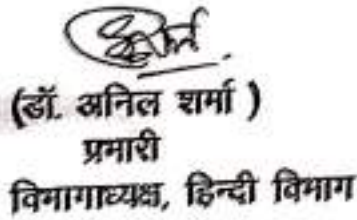 (डॉ. अनिल शर्मा )
प्रभारी
विभागाध्यक्ष, हिन्दी विभाग